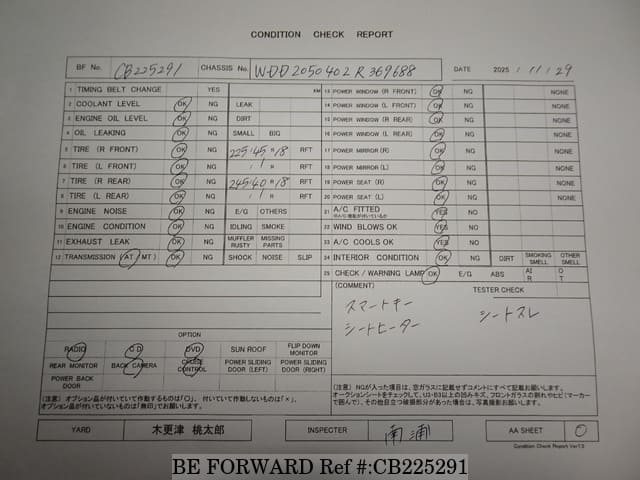 CONDITION CHECK REPORT
BF No. CB225291 CHASSIS No. WDD2050402R369688 DATE 2025 / 11 / 29
1 TIMING BELT CHANGE YES KM
2 COOLANT LEVEL OK NG LEAK
3 ENGINE OIL LEVEL OK NG DIRT
4 OIL LEAKING OK NG SMALL BIG
5 TIRE (R FRONT) OK NG 225/45 R 18 RFT
6 TIRE (L FRONT) OK NG / R RFT
7 TIRE (R REAR) OK NG 245/40 R 18 RFT
8 TIRE (L REAR) OK NG / R RFT
9 ENGINE NOISE OK NG E/G OTHERS
10 ENGINE CONDITION OK NG IDLING SMOKE
11 EXHAUST LEAK OK NG MUFFLER RUSTY MISSING PARTS
12 TRANSMISSION (AT / MT) OK NG SHOCK NOISE SLIP
13 POWER WINDOW (R FRONT) OK NG NONE
14 POWER WINDOW (L FRONT) OK NG NONE
15 POWER WINDOW (R REAR) OK NG NONE
16 POWER WINDOW (L REAR) OK NG NONE
17 POWER MIRROR (R) OK NG NONE
18 POWER MIRROR (L) OK NG NONE
19 POWER SEAT (R) OK NG NONE
20 POWER SEAT (L) OK NG NONE
21 A/C FITTED YES NO
22 WIND BLOWS OK YES NO
23 A/C COOLS OK YES NO
24 INTERIOR CONDITION OK NG DIRT SMOKING SMELL OTHER SMELL
25 CHECK / WARNING LAMP OK E/G ABS AI R O T
(COMMENT) TESTER CHECK
スマートキー シートスレ
シートヒーター
OPTION
RADIO CD DVD SUN ROOF FLIP DOWN MONITOR
REAR MONITOR BACK CAMERA CRUISE CONTROL POWER SLIDING DOOR (LEFT) POWER SLIDING DOOR (RIGHT)
POWER BACK DOOR
(注意) オプション品が付いていて作動するものは「○」、付いていて作動しないものは「×」、
オプション品が付いていないものは「無印」でお願いします。
(注意) NGが入った項目は、窓ガラスに記載せずコメントにすべて記載お願いします。
オークションシートをチェックして、U3・B3以上の凹みキズ、フロントガラスの割れやヒビ(マーカー
で囲んで)、その他目立つ破損部分があった場合は、写真撮影お願いします。
YARD 木更津 桃太郎 INSPECTER 南浦 AA SHEET 0
Condition Check Report Ver7.0
BE FORWARD Ref #:CB225291